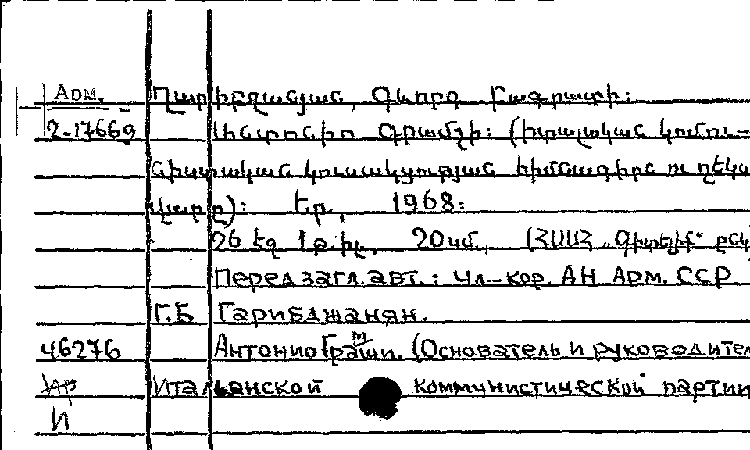 Арм. Ղարիբջանյան, Գևորգ Բագրատի:
2-17669 Անտոնիո Գրամշի: (Իտալական կոմու-
նիստական կուսակցության հիմնադիրն ու ղեկա
վարը): Եր., 1968:
26 էջ 1 թ. իլ. 20 սմ. (ՀՍՍՀ „Գիտելիք“ ընկ
Перед загл. авт.: чл-кор. АН Арм. ССР
Г.Б Гарибджанян.
46276 Антонио Грамши. (Основатель и руководител
Итальянской коммунистической партии
И